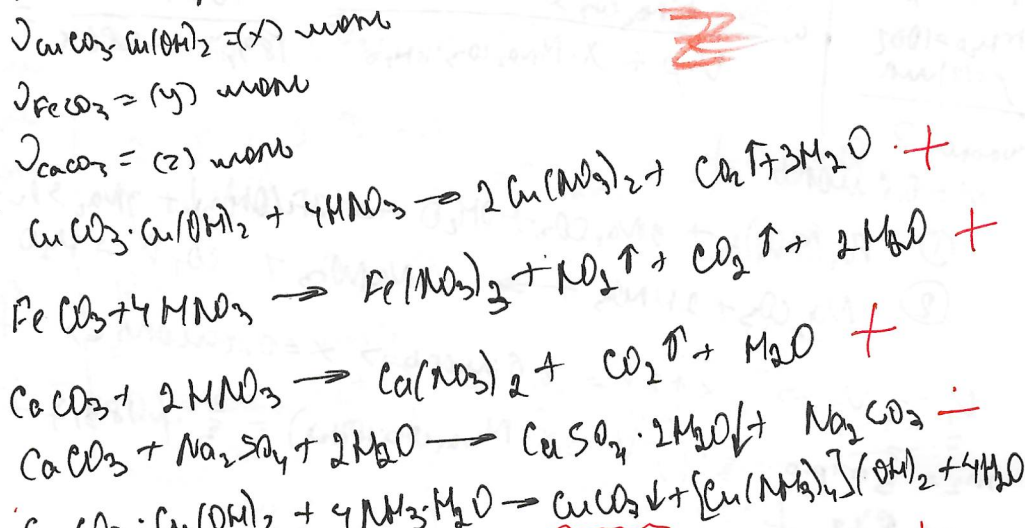 ν CuCO₃·Cu(OH)₂ = (x) моль
ν FeCO₃ = (y) моль
ν CaCO₃ = (z) моль
CuCO₃·Cu(OH)₂ + 4HNO₃ → 2Cu(NO₃)₂ + CO₂↑ + 3H₂O +
FeCO₃ + 4HNO₃ → Fe(NO₃)₃ + NO₂↑ + CO₂↑ + 2H₂O +
CaCO₃ + 2HNO₃ → Ca(NO₃)₂ + CO₂↑ + H₂O +
CaCO₃ + Na₂SO₄ + 2H₂O → CaSO₄·2H₂O↓ + Na₂CO₃ −
CuCO₃·Cu(OH)₂ + 4NH₃·H₂O → CuCO₃↓ + [Cu(NH₃)₄](OH)₂ + 4H₂O